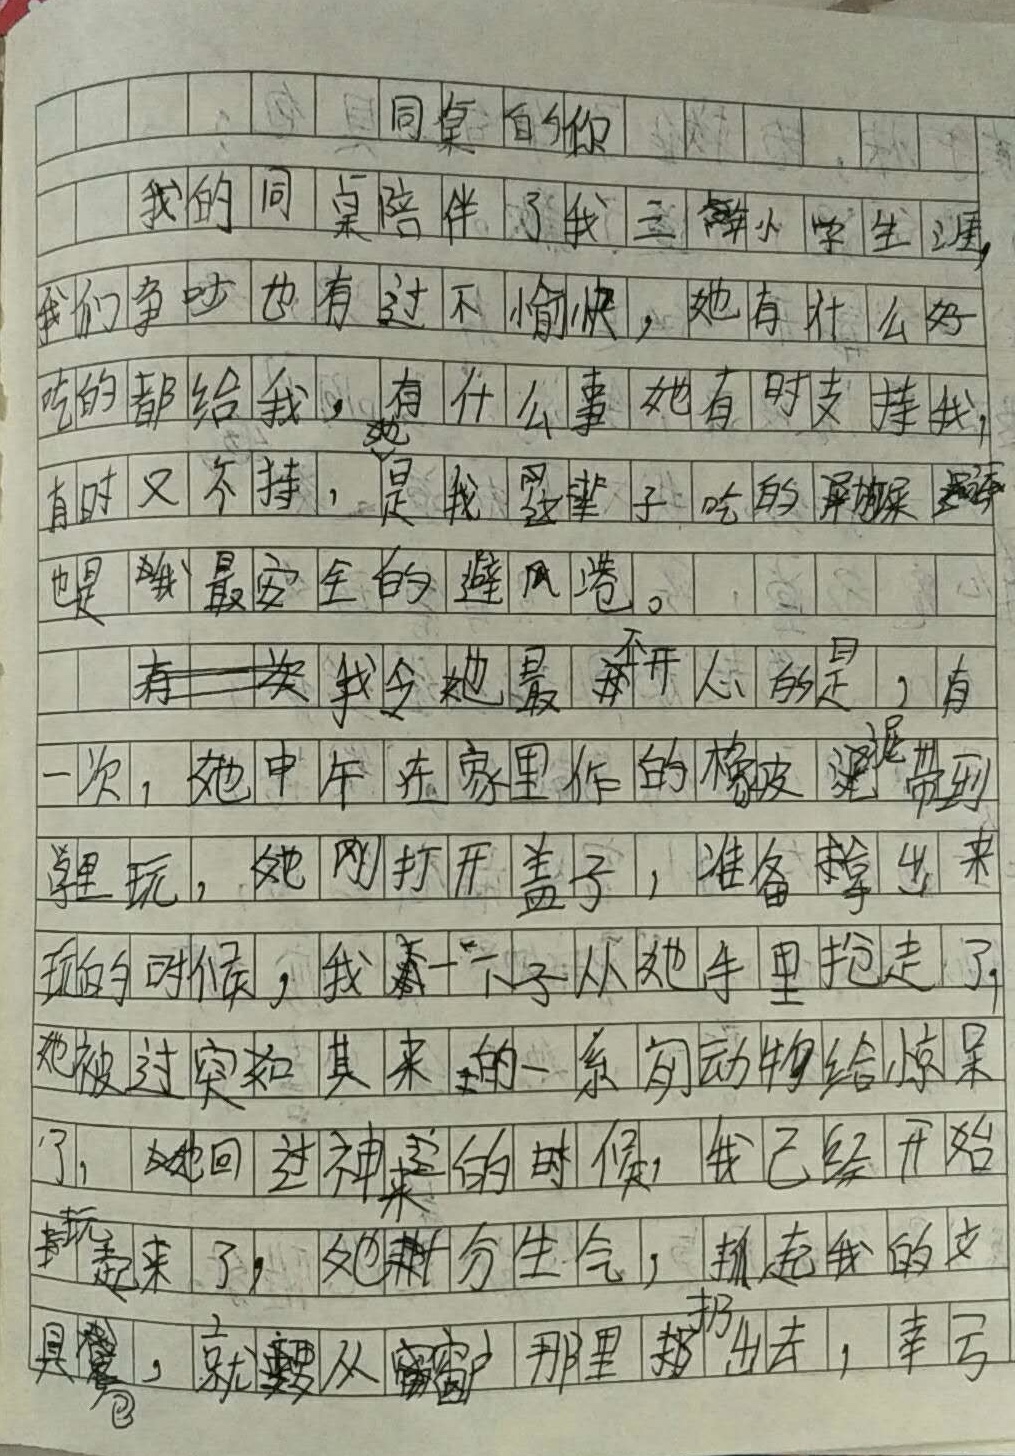 同桌的你
我的同桌陪伴了我三年小学生涯，
我们争吵也有过不愉快，她有什么好
吃的都给我，有什么事她有时支持我，
有时又不持，她是我这辈子吃的
也是我最安全的避风港。
我令她最不开心的是，有
一次，她中午在家里作的橡皮泥带到
学里玩，她刚打开盖子，准备拿出来
玩的时候，我一下子从她手里抢走了，
她被过突如其来的一系列动物给惊呆
了，她回过神来的时候，我已经开始
玩起来了，她十分生气，抓起我的文
具，就要从窗户那里扔出去，幸亏